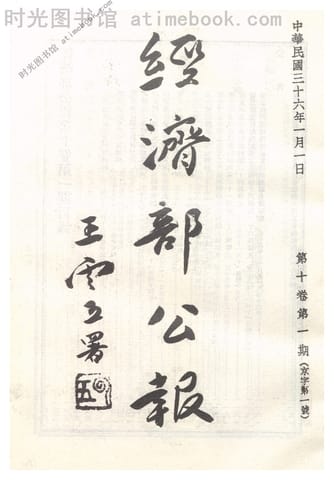 时光图书馆 www.atimebook.com
时光图书馆 atimebook.com
中華民國三十六年一月一日
第十卷第一期(京字第一號)
經濟部公報
王雲五署